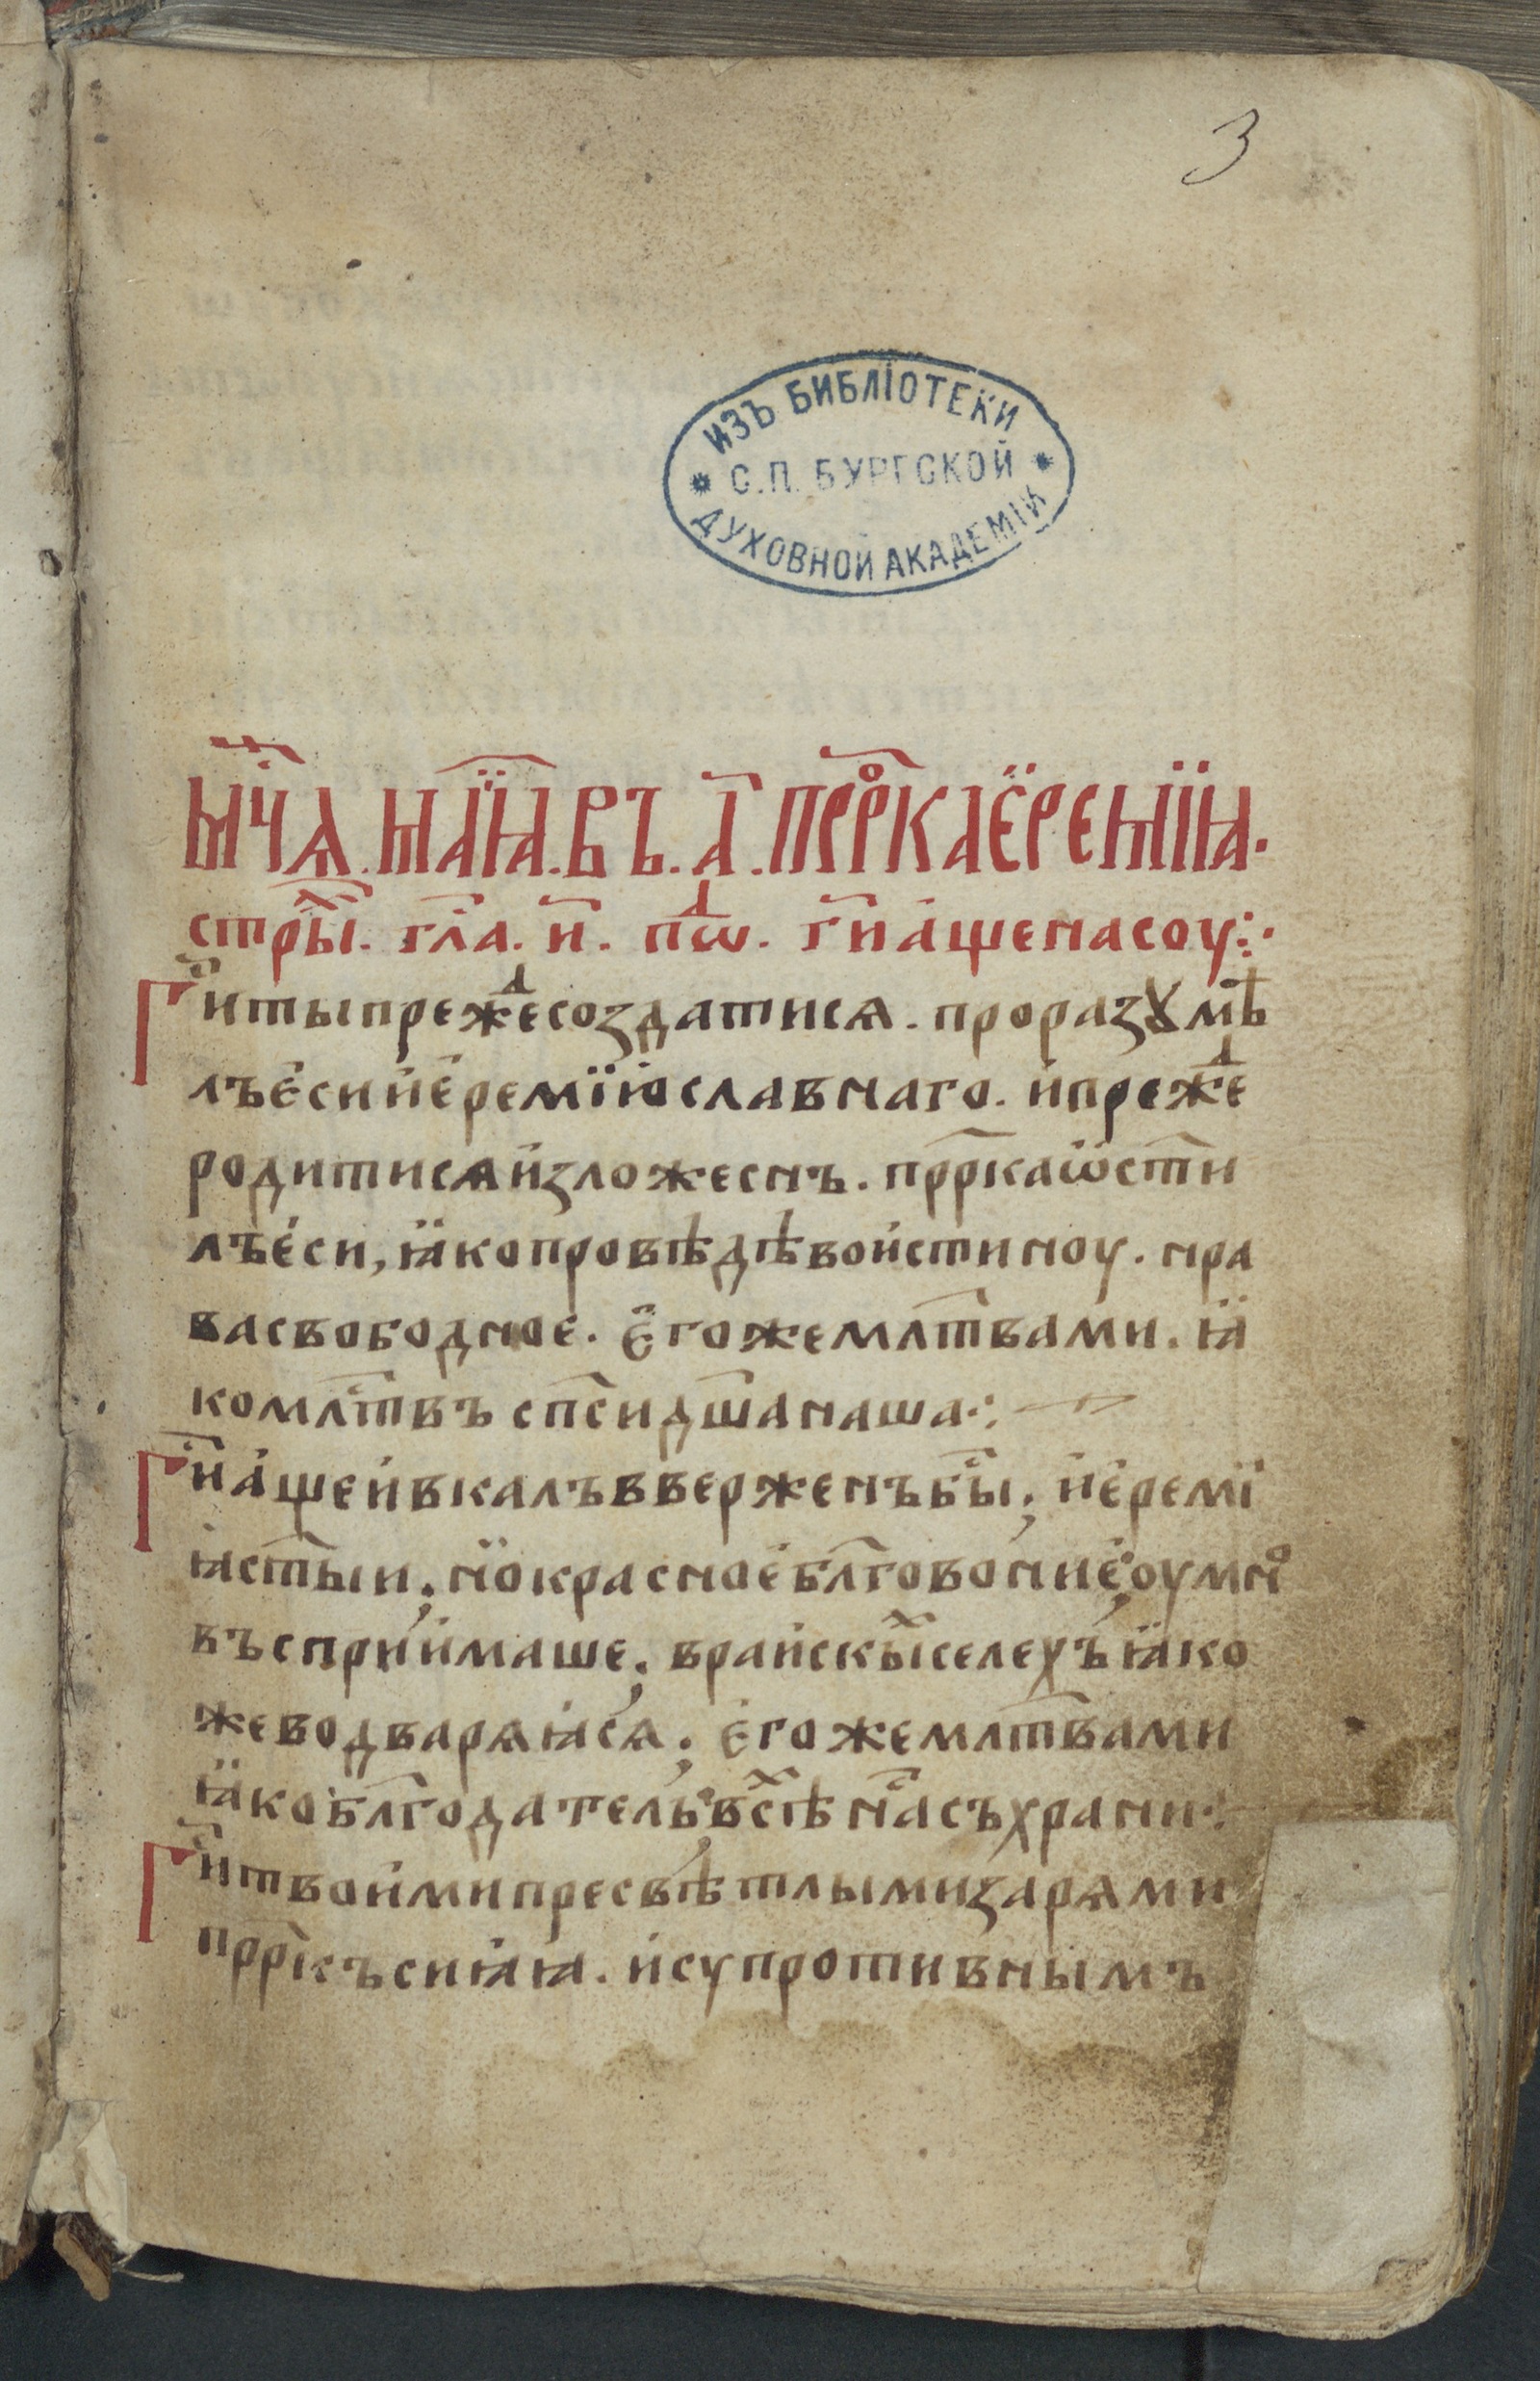 3
ИЗЪ БИБЛІОТЕКИ
* С.П. БУРГСКОЙ *
ДУХОВНОЙ АКАДЕМІИ
мⷭ҇цⷭ҇ѧ. маїꙗ. въ. а҃. прⷪ҇рка ї҆еремїꙗ.
стрⷯы. гл҃а. и҃. пⷣѡ. гн҃ аще на соу:·
Гⷭ҇и ты прежⷣе создатисѧ. проразꙋмѣ
лъ е҆си и҆еремїю славнаго. и҆ прежⷣе
родитисѧ и҆зложеснъ. прⷪ҇рка ѡ҆ст҃и
лъ е҆си, ꙗ҆ко провѣдѣ воистиноу. нра
ва свободное. е҆гоже млт҃вами. ꙗ҆
ко млⷭ҇твъ сп҃си дш҃а наша:·
Гⷭ҇и аще и҆ в калъ вверженъ бⷭ҇ы; и҆еремї
ꙗ ст҃ыи; но красное бл҃говоние оумнⷪ
въсприимаше; в раискⷯы селехъ ꙗ҆ко
же водварѧꙗсѧ; е҆гоже млт҃вами
ꙗ҆ко бл҃годатель, всⷯѣ нⷭ҇а съхрани:·
Гⷭ҇и твоими пресвѣтлыми зарѧми
прⷪ҇ркъ сиꙗꙗ. и҆ супротивнымъ